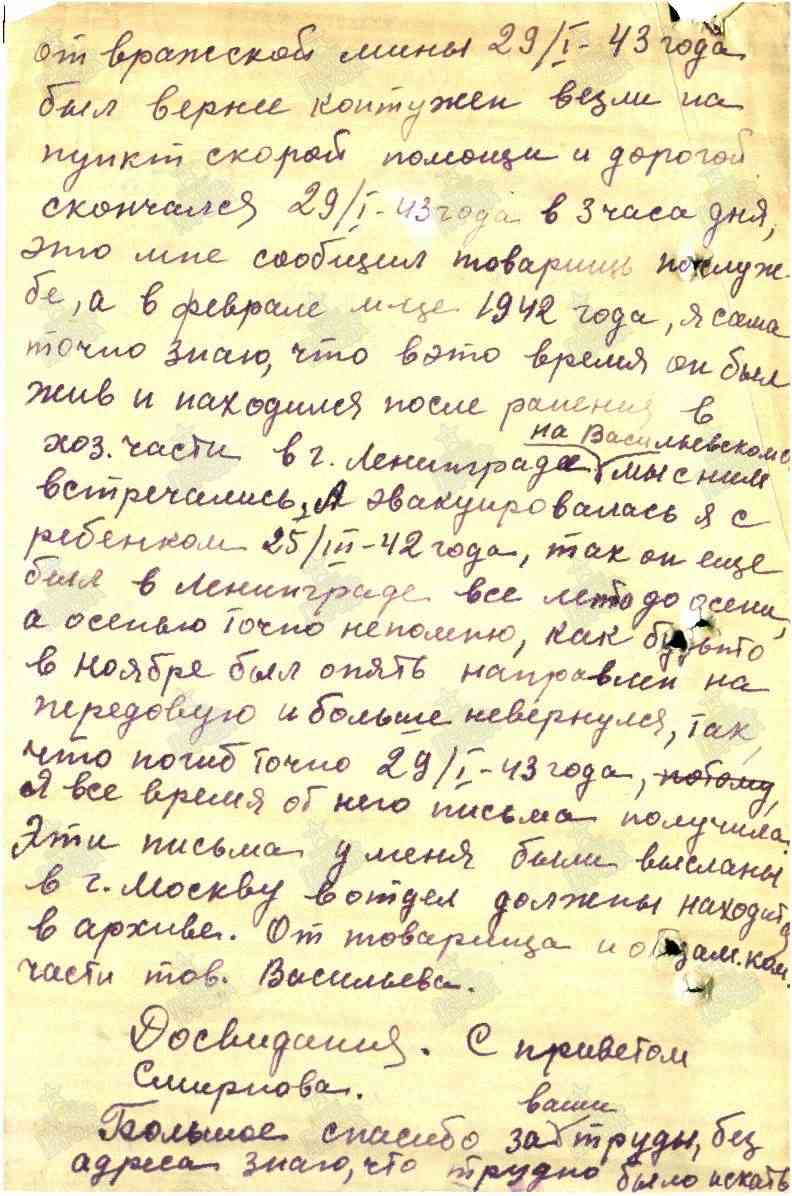 от вражской мины 29/I-43 года
был вернее контужен везли на
пункт скорой помощи и дорогой
скончался 29/I-43 года в 3 часа дня,
это мне сообщил товарищь послуж-
бе, а в феврале м-це 1942 года, я сама
точно знаю, что вэто время он был
жив и находился после ранения в
на Васильевском о.
хоз. части в г. Ленинграде мы с ним
встречались, А эвакуировалась я с
ребенком 25/III-42 года, так он еще
был в Ленинграде все лето до осени,
а осенью точно непомню, как будьто
в ноябре был опять направлен на
передовую и больше невернулся, так
что погиб точно 29/I-43 года, потому,
Я все время от него письма получила.
Эти письма у меня были высланы
в г. Москву вотдел должны находится
в архиве. От товарища и от зам. ком.
части тов. Васильева.
Досвидания. С приветом
Смирнова.
ваши
Большое спасибо за труды, без
адреса знаю, что трудно было искать